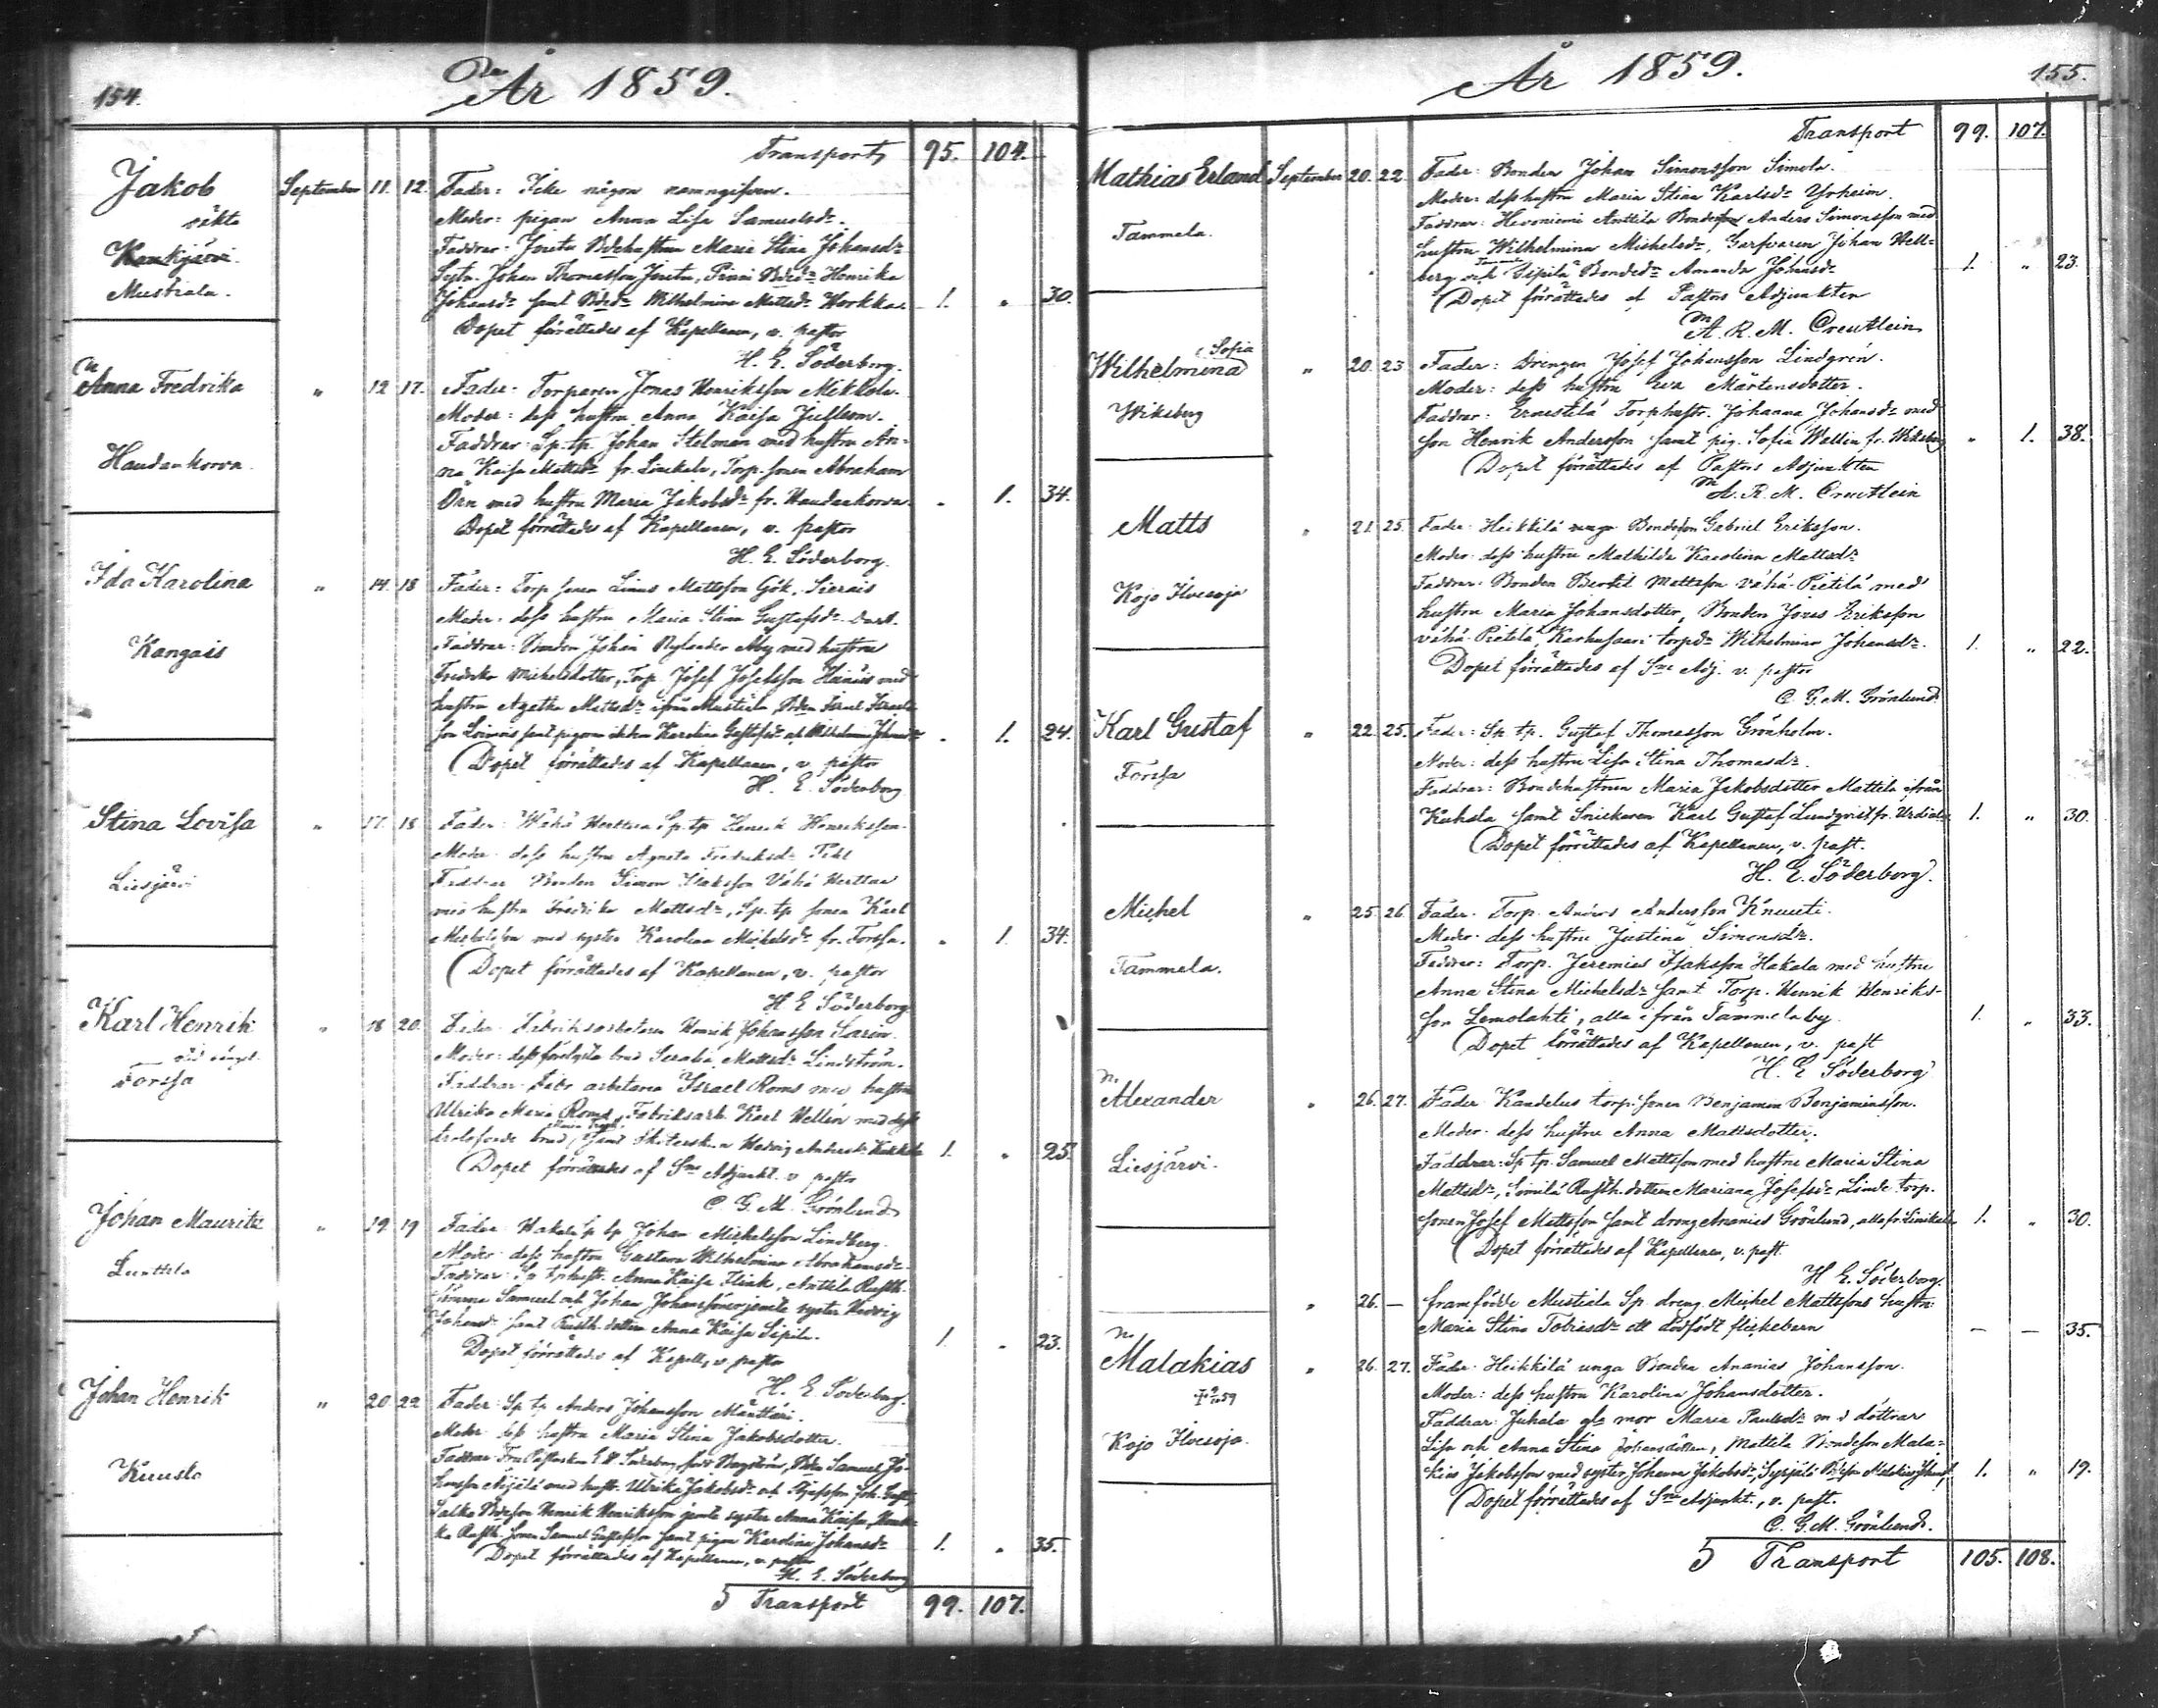 154.
År 1859.
Transport 95. 104.
Jakob September 11. 12. Fader: Icke någon namngifven.
oäkta Moder: pigan Anna Lisa Samuelsdr.
Faddrar: Bdehustrun Maria Stina Johansdr
Johan Thomasson, Bdedr Henrika
Mustiala. Johansdr samt Bdedr Wilhelmina Mattsdr Workka. 1. " 30.
Dopet förrättades af Kapellanen, v. pastor
H. E. Söderborg.
n
Anna Fredrika " 12 17. Fader: Torparen Jonas Henriksson Mikkola.
Moder: dess hustru Anna Kaisa
Faddrar: Sp. tp. Johan Stelman med hustru An-
Haudankorva. na Kaisa Mattsdr fr. Linikkala, Torp. sonen Abraham
Örn med hustru Maria Jakobsdr fr. Haudankorva. " 1. 34.
Dopet förrättades af Kapellanen, v. pastor
H. E. Söderborg.
Ida Karolina " 14. 18 Fader: Torp sonen Linus Mattsson Gök, Sierais
Moder: dess hustru Maria Stina Gustafsdr
Kangais Faddrar: Bonden Johan Nylander Åby med hustru
Fredrika Michelsdotter, Torp. Josef Josefsson med
hustru Agatha Mattsdr ifrån Mustiala, Bden Israel Israels-
son samt pigorna Karolina Gustafsdr och Wilhelmina Johansdr " 1. 24.
Dopet förrättades af Kapellanen, v. pastor
H. E. Söderborg
Stina Lovisa " 17. 18 Fader: Wähä Herttua Sp. tp Henrik Henriksson.
Moder: dess hustru Agneta Fredriksdr
Liesjärvi Faddrar: Bonden Simon Isaksson Vähä Herttua
med hustru Fredrika Mattsdr, Sp. tp sonen Karl
Michelsson med syster Karolina Michelsdr fr. Forssa. " 1. 34.
Dopet förrättades af Kapellanen, v. pastor
H. E. Söderborg
Karl Henrik " 18 20. Fader: Fabriksarbetaren Henrik Johansson
Moder: dess förelysta brud Serafia Mattsdr Lindström.
Forssa Faddrar: Fabr arbetaren Israel Roms med hustru
Ulrika Maria Roms, Fabriksarb. Karl Hellén med dess
trolofvade brud, samt Hedvig Andersdr 1. " 25.
Dopet förrättades af Sne Adjunkt. v. pastor
C. G. M. Grönlund
Johan Mauritz " 19. 19 Fader: Hakala Sp tp Johan Michelsson Lindberg.
Moder: dess hustru Gustava Wilhelmina Abrahamsdr
Faddrar: Sp. tphustr. Anna Kaisa Anttila Rusth.
sönerna Samuel och Johan Johanssöner jemte syster Hedvig
Johansdr samt Rusth. dottren Anna Kaisa Sipilä. 1. " 23.
Dopet förrättades af Kapell, v. pastor
H. E. Söderborg.
Johan Henrik " 20. 22 Fader: Sp tp Anders Johansson Mänttäri.
Moder: dess hustru Maria Stina Jakobsdotter.
Kuusto Faddrar: Fru Pastorskan Söderborg, född Bergström, Bden Samuel Jo-
hansson med hustr. Ulrika Jakobsdr och
Salko Bdesson Henrik Henriksson jemte syster Anna Kaisa,
Rusth. sonen Samuel Gustafsson samt pigan Karolina Johansdr 1. " 35.
Dopet förrättades af Kapellanen, v. pastor
H. E. Söderborg
Transport 99. 107.
År 1859. 155.
Transport 99. 107.
Mathias Erland September 20. 22. Fader: Bonden Johan Simonsson Simola.
Moder: dess hustru Maria Stina Karlsdr
Tammela. Faddrar: Heroniemi Anttila Bondeson Anders Simonsson med
hustru Wilhelmina Michelsdr, Garfvaren Johan Hell-
berg och Sipilä Bondedr Amanda Johansdr 1. " 23.
Dopet förrättades af Pastors Adjunkten
A. R. M. Creutlein
Sofia
Wilhelmina " 20. 23 Fader: Drengen Josef Johansson Lindgrén.
Moder: dess hustru Eva Mårtensdotter.
Wiksberg Faddrar: Ernestilä Torphustr. Johanna Johansdr med
son Henrik Andersson samt pig. Sofia Wallin fr. Wiksberg " 1. 38.
Dopet förrättades af Pastors Adjunkten
A. R. M. Creutlein
Matts " 21. 25. Fader: Heikkilä unga Bondeson Gabriel Eriksson.
Moder: dess hustru Mathilda Karolina Mattsdr
Faddrar: Bonden Bertil Mattsson Vähä-Pietilä med
Kojo Ilvesoja hustru Maria Johansdotter, Bonden Jonas Eriksson
vähä Pietilä, Karhusaari torpdr Wilhelmina Johansdr. 1. " 22.
Dopet förrättades af Sne Adj. v. pastor
C. G. M. Grönlund.
Karl Gustaf " 22. 25. Fader: Sp. tp. Gustaf Thomasson Grönholm.
Moder: dess hustru Lisa Stina Thomasdr.
Forssa Faddrar: Bondehustrun Maria Jakobsdotter Mattila ifrån
Kuhala samt Snickaren Karl Gustaf Lundqvist fr. Urdiala 1. " 30.
Dopet förrättades af Kapellanen, v. past.
H. E. Söderborg.
Michel " 25. 26. Fader: Torp. Anders Andersson Knuuti.
Moder: dess hustru Justina Simonsdr.
Faddrar: Torp. Jeremias Isaksson Hakala med hustru
Tammela. Anna Stina Michelsdr samt Torp. Henrik Henriks-
son Lemolahti, alla ifrån Tammela by. 1. " 33.
Dopet förrättades af Kapellanen, v. past
H. E. Söderborg
n.
Alexander " 26. 27. Fader: Kandelus torp. sonen Benjamin Benjaminsson.
Moder: dess hustru Anna Mattsdotter.
Liesjärvi. Faddrar: Sp. tp. Samuel Mattsson med hustru Maria Stina
Mattsdr, Rusth. dottren Mariana Josefsdr, Linde torp.
sonen Josef Mattsson samt dreng Ananias Grönlund, alla fr. Linikkala 1. " 30.
Dopet förrättades af Kapellanen, v. past.
H E. Söderborg.
" 26. — framfödde Mustiala Sp. dreng. Michel Mattssons hustru
Maria Stina Tobiasdr ett dödfödt flickebarn — — 35.
n.
Malakias " 26. 27. Fader: Heikkilä unga Bonden Ananias Johansson.
Moder: dess hustru Karolina Johansdotter.
Faddrar: Juhala gla mor Maria Paulsdr med döttrar
Kojo Ilvesoja. Lisa och Anna Stina Johansdöttrar, Mattila Bondeson Mala-
kias Jakobsson med syster Johanna Jakobsdr, Syrjälä Bdeson Malakias 1. " 19.
Dopet förrättades af Sne Adjunkt., v. past.
C. G. M. Grönlund.
Transport 105. 108.